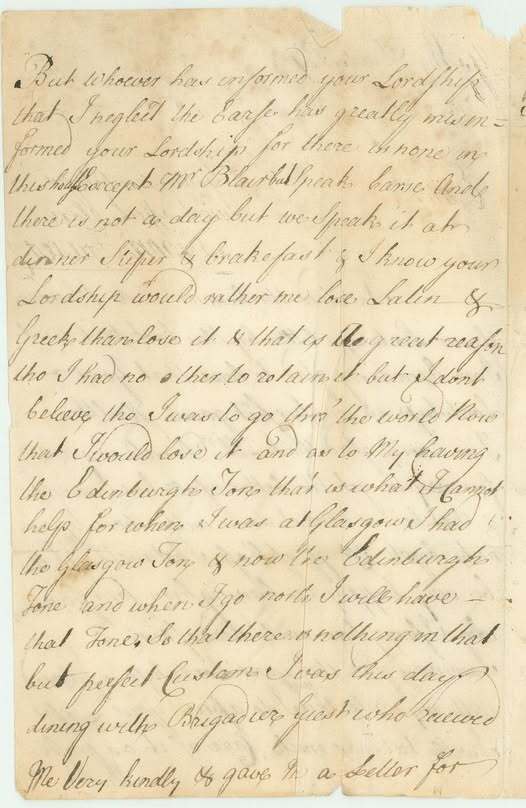 But whoever has informed your Lordship
that I neglect the Earse has greatly misin=
formed your Lordship for there is none in
this house Except Mr Blair but Speak Earse And
there is not a day but we Speak it at
dinner Super & brakefast & I know your
Lordship would rather me lose Latin &
Greek than lose it & that is the great reason
tho I had no other to retain it but I dont
believe tho I was to go thro' the world Now
that I would lose it and as to My having
the Edinburgh Tone that is what I Cannot
help for when I was at Glasgow I had
the Glasgow Tone & now the Edinburgh
Tone and when I go north I will have -
that Tone, So that there is nothing in that
but perfect Custom I was this day
dining with Brigadier Guest who received
Me Very kindly & gave m a Letter for